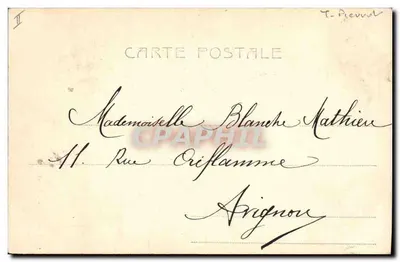 II
CARTE POSTALE
Mademoiselle Blanche Mathieu
11. Rue Oriflamme
Avignon
CPAPHIL